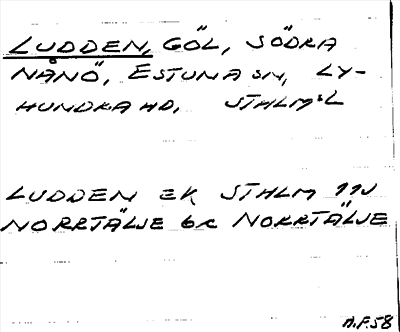 LUDDEN, GÖL, SÖDRA
NÅNÖ, ESTUNA SN, LY-
HUNDRA HD, STHLMS L
LUDDEN EK STHLM 11J
NORRTÄLJE 6c NORRTÄLJE
A.F.58